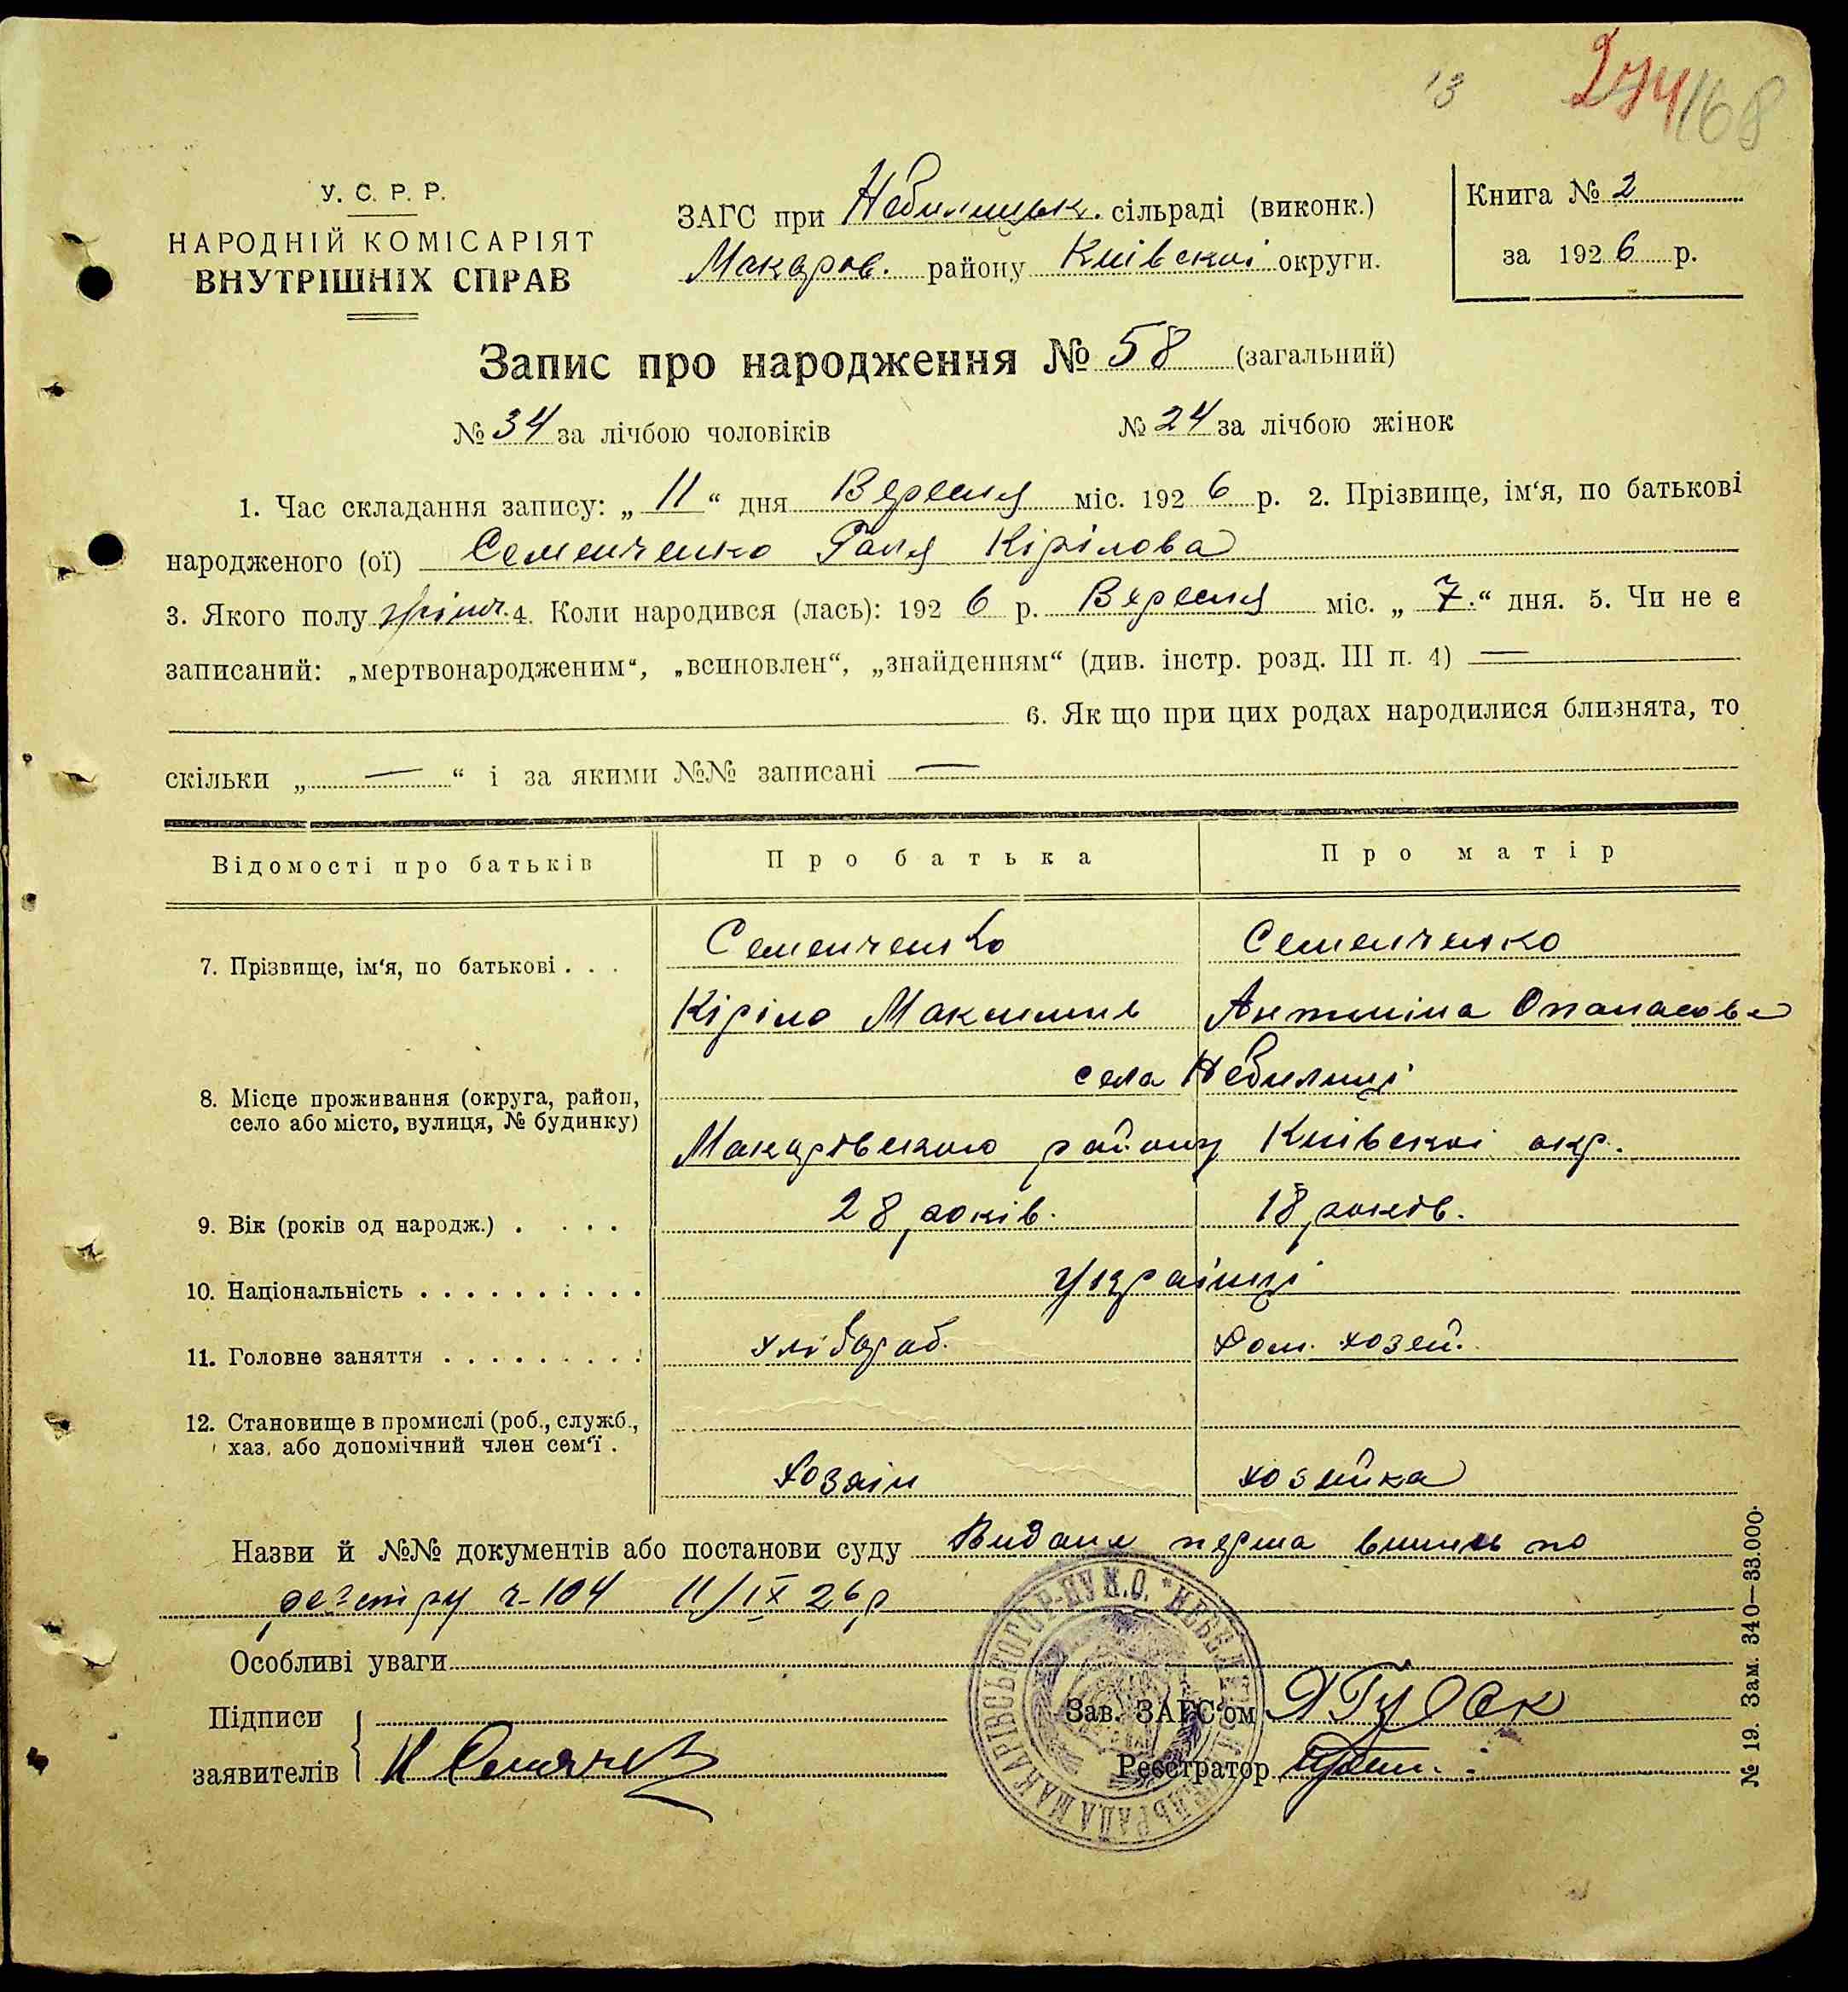 13 274/168
У. С. Р. Р.
НАРОДНІЙ КОМІСАРІЯТ
ВНУТРІШНІХ СПРАВ
ЗАГС при Небилицьк. сільраді (виконк.)
Макаров. району Київскої округи.
Книга № 2
за 1926 р.
Запис про народження № 58 (загальний)
№ 34 за лічбою чоловіків № 24 за лічбою жінок
1. Час складання запису: „ 11 “ дня Вересня міс. 1926 р. 2. Прізвище, ім‘я, по батькові
народженого (ої) Семенченко Галя Кірілова
3. Якого полу жіноч. 4. Коли народився (лась): 1926 р. Вересня міс. „ 7.“ дня. 5. Чи не є
записаний: „мертвонародженим“, „всиновлен“, „знайденням“ (див. інстр. розд. III п. 4) —
6. Як що при цих родах народилися близнята, то
скільки „ — “ і за якими №№ записані —
Відомості про батьків Про батька Про матір
7. Прізвище, ім‘я, по батькові . . . Семенченко Семенченко
Кіріло Максимів Антоніна Опанасова
8. Місце проживання (округа, район, села Небилиці
село або місто, вулиця, № будинку) Макарівского району Київскої окр.
9. Вік (років од народж.) . . . . 28 років. 18 років.
10. Національність . . . . . . . . . . Українці
11. Головне заняття . . . . . . . . . хлібороб. Дом. хозей.
12. Становище в промислі (роб., служб.,
хаз. або допомічний член сем‘ї .
Хозяін хозяйка
Назви й №№ документів або постанови суду Видана перша випись по
регестру ч-104 11/IX 26 р
Особливі уваги
Підписи
заявителів
Зав. ЗАГС‘ом
Реєстратор
№ 19. Зам. 340—33.000.